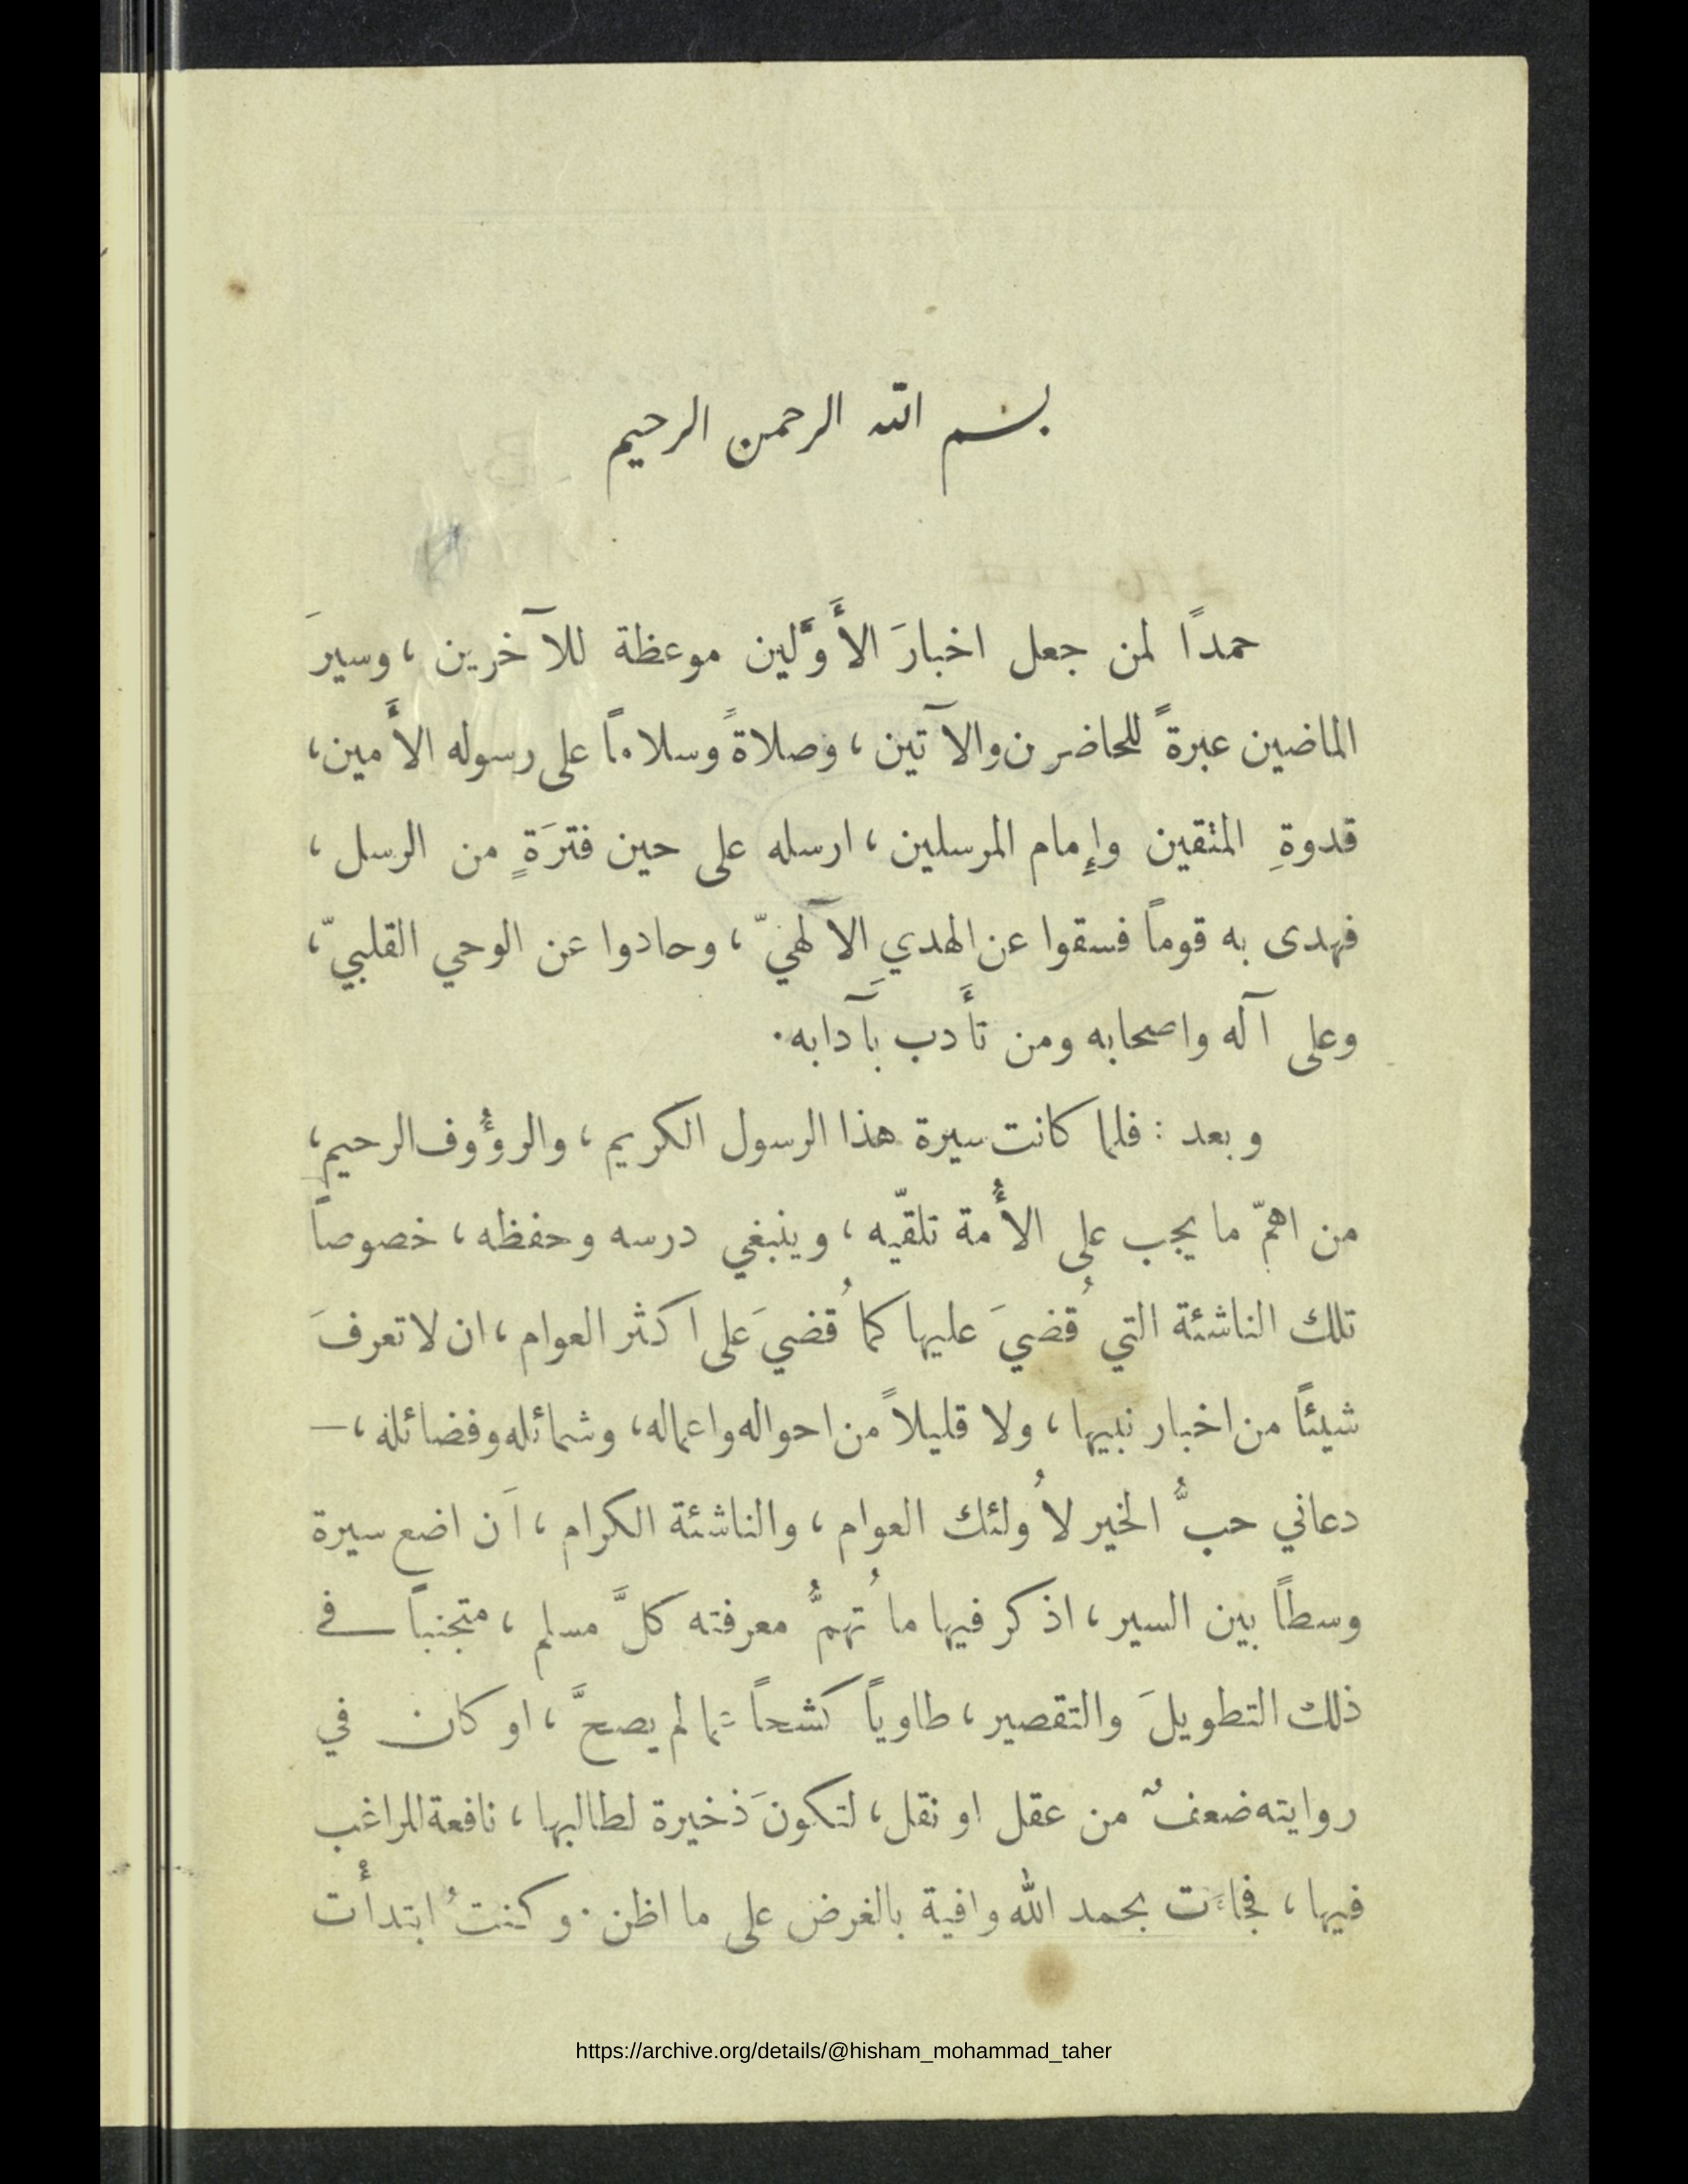 بسم الله الرحمن الرحيم
حمدًا لمن جعل اخبارَ الأَوَّلين موعظة للآخرين ، وسيرَ
الماضين عبرةً للحاضرين والآتين ، وصلاةً وسلاماً على رسوله الأَمين ،
قدوةِ المتقين وإِمام المرسلين ، ارسله على حين فترَةٍ من الرسل ،
فهدى به قوماً فسقوا عن الهديِ الآلهيّ ، وحادوا عن الوحي القلبيّ ،
وعلى آله واصحابه ومن تأَدب بِآدابه .
وبعد : فلما كانت سيرة هذا الرسول الكريم ، والرؤُوف الرحيم ،
من اهمّ ما يجب على الأُمة تلقّيه ، وينبغي درسه وحفظه ، خصوصاً
تلك الناشئة التي قُضيَ عليها كما قُضيَ على اكثر العوام ، ان لا تعرفَ
شيئاً من اخبار نبيها ، ولا قليلاً من احواله واعماله ، وشمائله وفضائله ، —
دعاني حبُّ الخير لأُولئك العوام ، والناشئة الكرام ، اَن اضع سيرة
وسطاً بين السير ، اذكر فيها ما تُهمُّ معرفته كلَّ مسلم ، متجنباً في
ذلك التطويلَ والتقصير ، طاوياً كشحاً عما لم يصحَّ ، او كان في
روايته ضعفٌ من عقل او نقل ، لتكونَ ذخيرة لطالبها ، نافعة للراغب
فيها ، فجاءَت بحمد الله وافية بالغرض على ما اظن . وكنتُ ابتدأْت
https://archive.org/details/@hisham_mohammad_taher